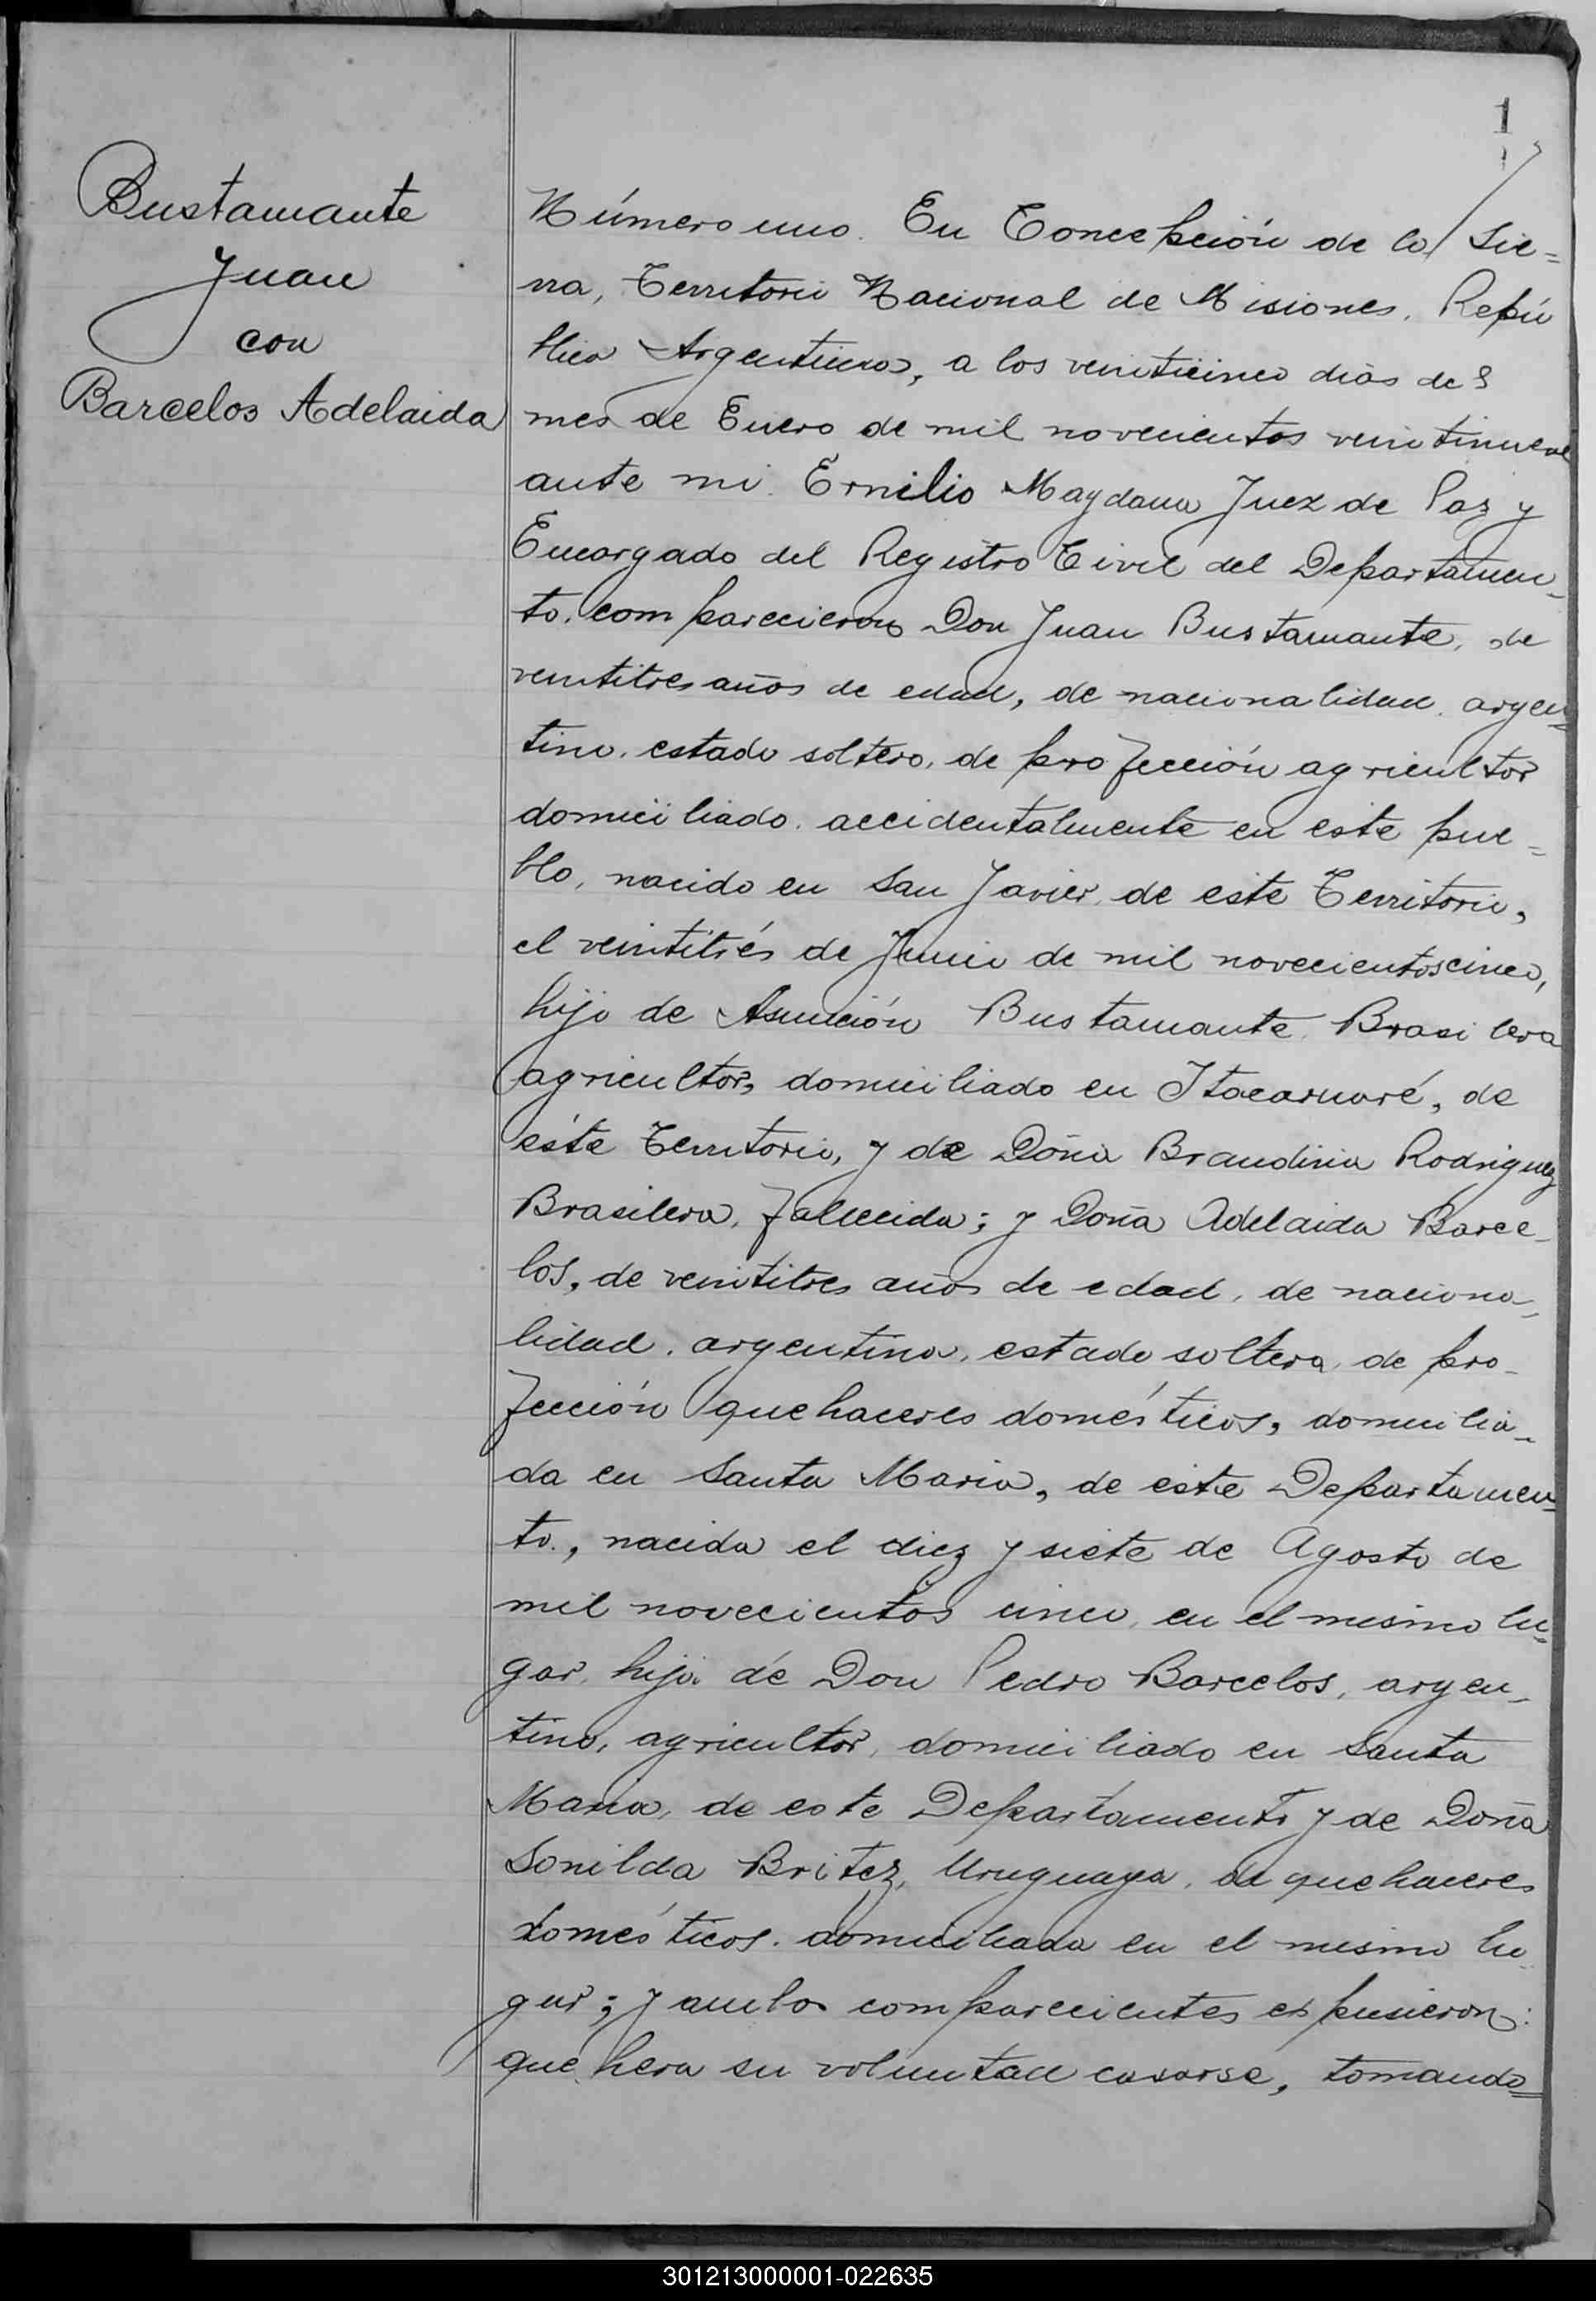 1
Bustamante
Juan
con
Barcelos Adelaida
Número uno. En Concepción de la Sie=
rra, Territorio Nacional de Misiones, Repú
blica Argentina, a los veinticinco dias del
mes de Enero de mil novecientos veintinueve
ante mi Emilio Maydana Juez de Paz y
Encargado del Registro Civil del Departamen_
to, comparecieron Don Juan Bustamante, de
veintitres años de edad, de nacionalidad argen=
tino, estado soltero, de profección agricultor
domiciliado accidentalmente en este pue=
blo, nacido en San Javier de este Territorio,
el veintitrés de Junio de mil novecientos cinco,
hijo de Asunción Bustamante, Brasilera
agricultor, domiciliado en Itacaruaré, de
éste Territorio, y de Doña Brandina Rodriguez
Brasilera, fallecida; y Doña Adelaida Barce_
los, de veintitres años de edad, de naciona_
lidad argentina, estado soltera, de pro_
fección quehaceres domésticos, domicilia_
da en Santa Maria, de este Departamen=
to., nacida el diez y siete de Agosto de
mil novecientos cinco, en el mismo lu=
gar, hija de Don Pedro Barcelos, argen_
tino, agricultor, domiciliado en Santa
Maria, de este Departamento y de Doña
Sonilda Britez, Uruguaya, de quehaceres
domésticos, domiciliada en el mismo lu
gar; y ambos comparecientes expusieron:
que hera su voluntad casarse, tomando=
301213000001-022635